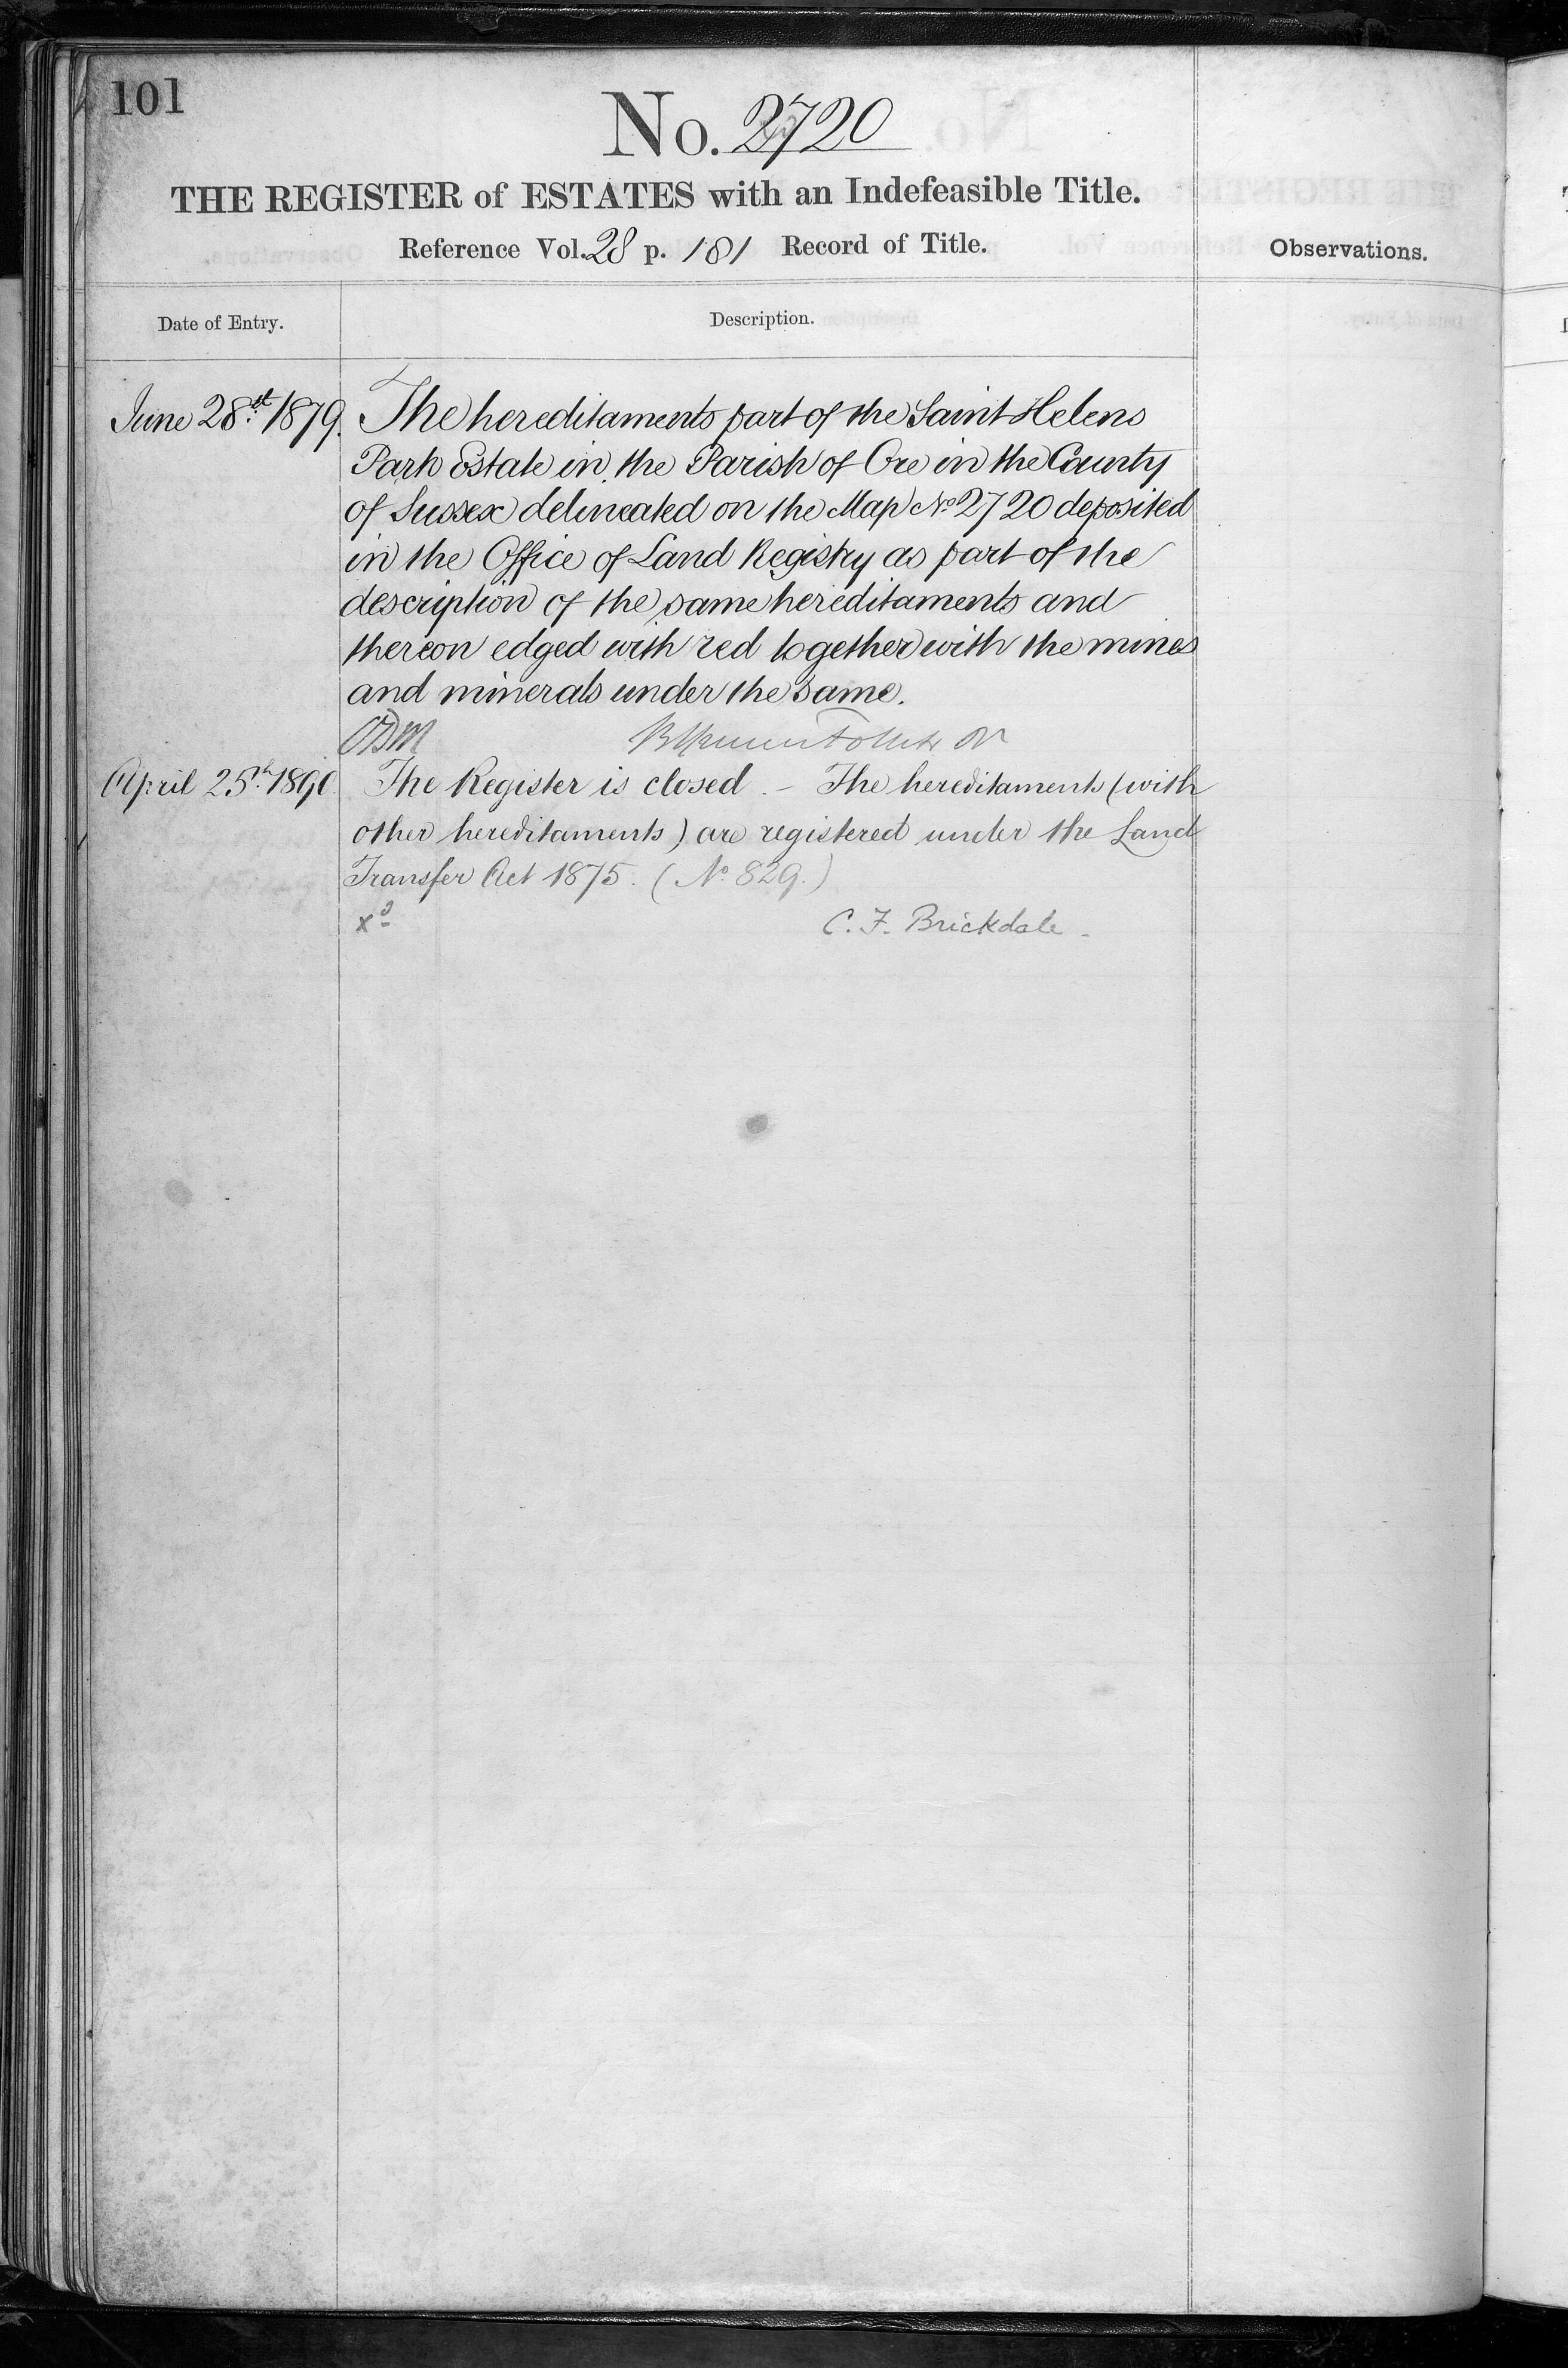 101
No. 2720
THE REGISTER of ESTATES with an Indefeasible Title.
Reference Vol. 28 p. 181 Record of Title.
Observations.
Date of Entry.
Description.
June 28th 1879. The hereditaments part of the Saint Helens
Park Estate in the Parish of Ore in the County
of Sussex delineated on the Map No 2720 deposited
in the Office of Land Registry as part of the
description of the same hereditaments and
thereon edged with red together with the mines
and minerals under the same.
April 25th 1890. The Register is closed. - The hereditaments (with
other hereditaments) are registered under the Land
Transfer Act 1875. (No 829.)
C. F. Brickdale.